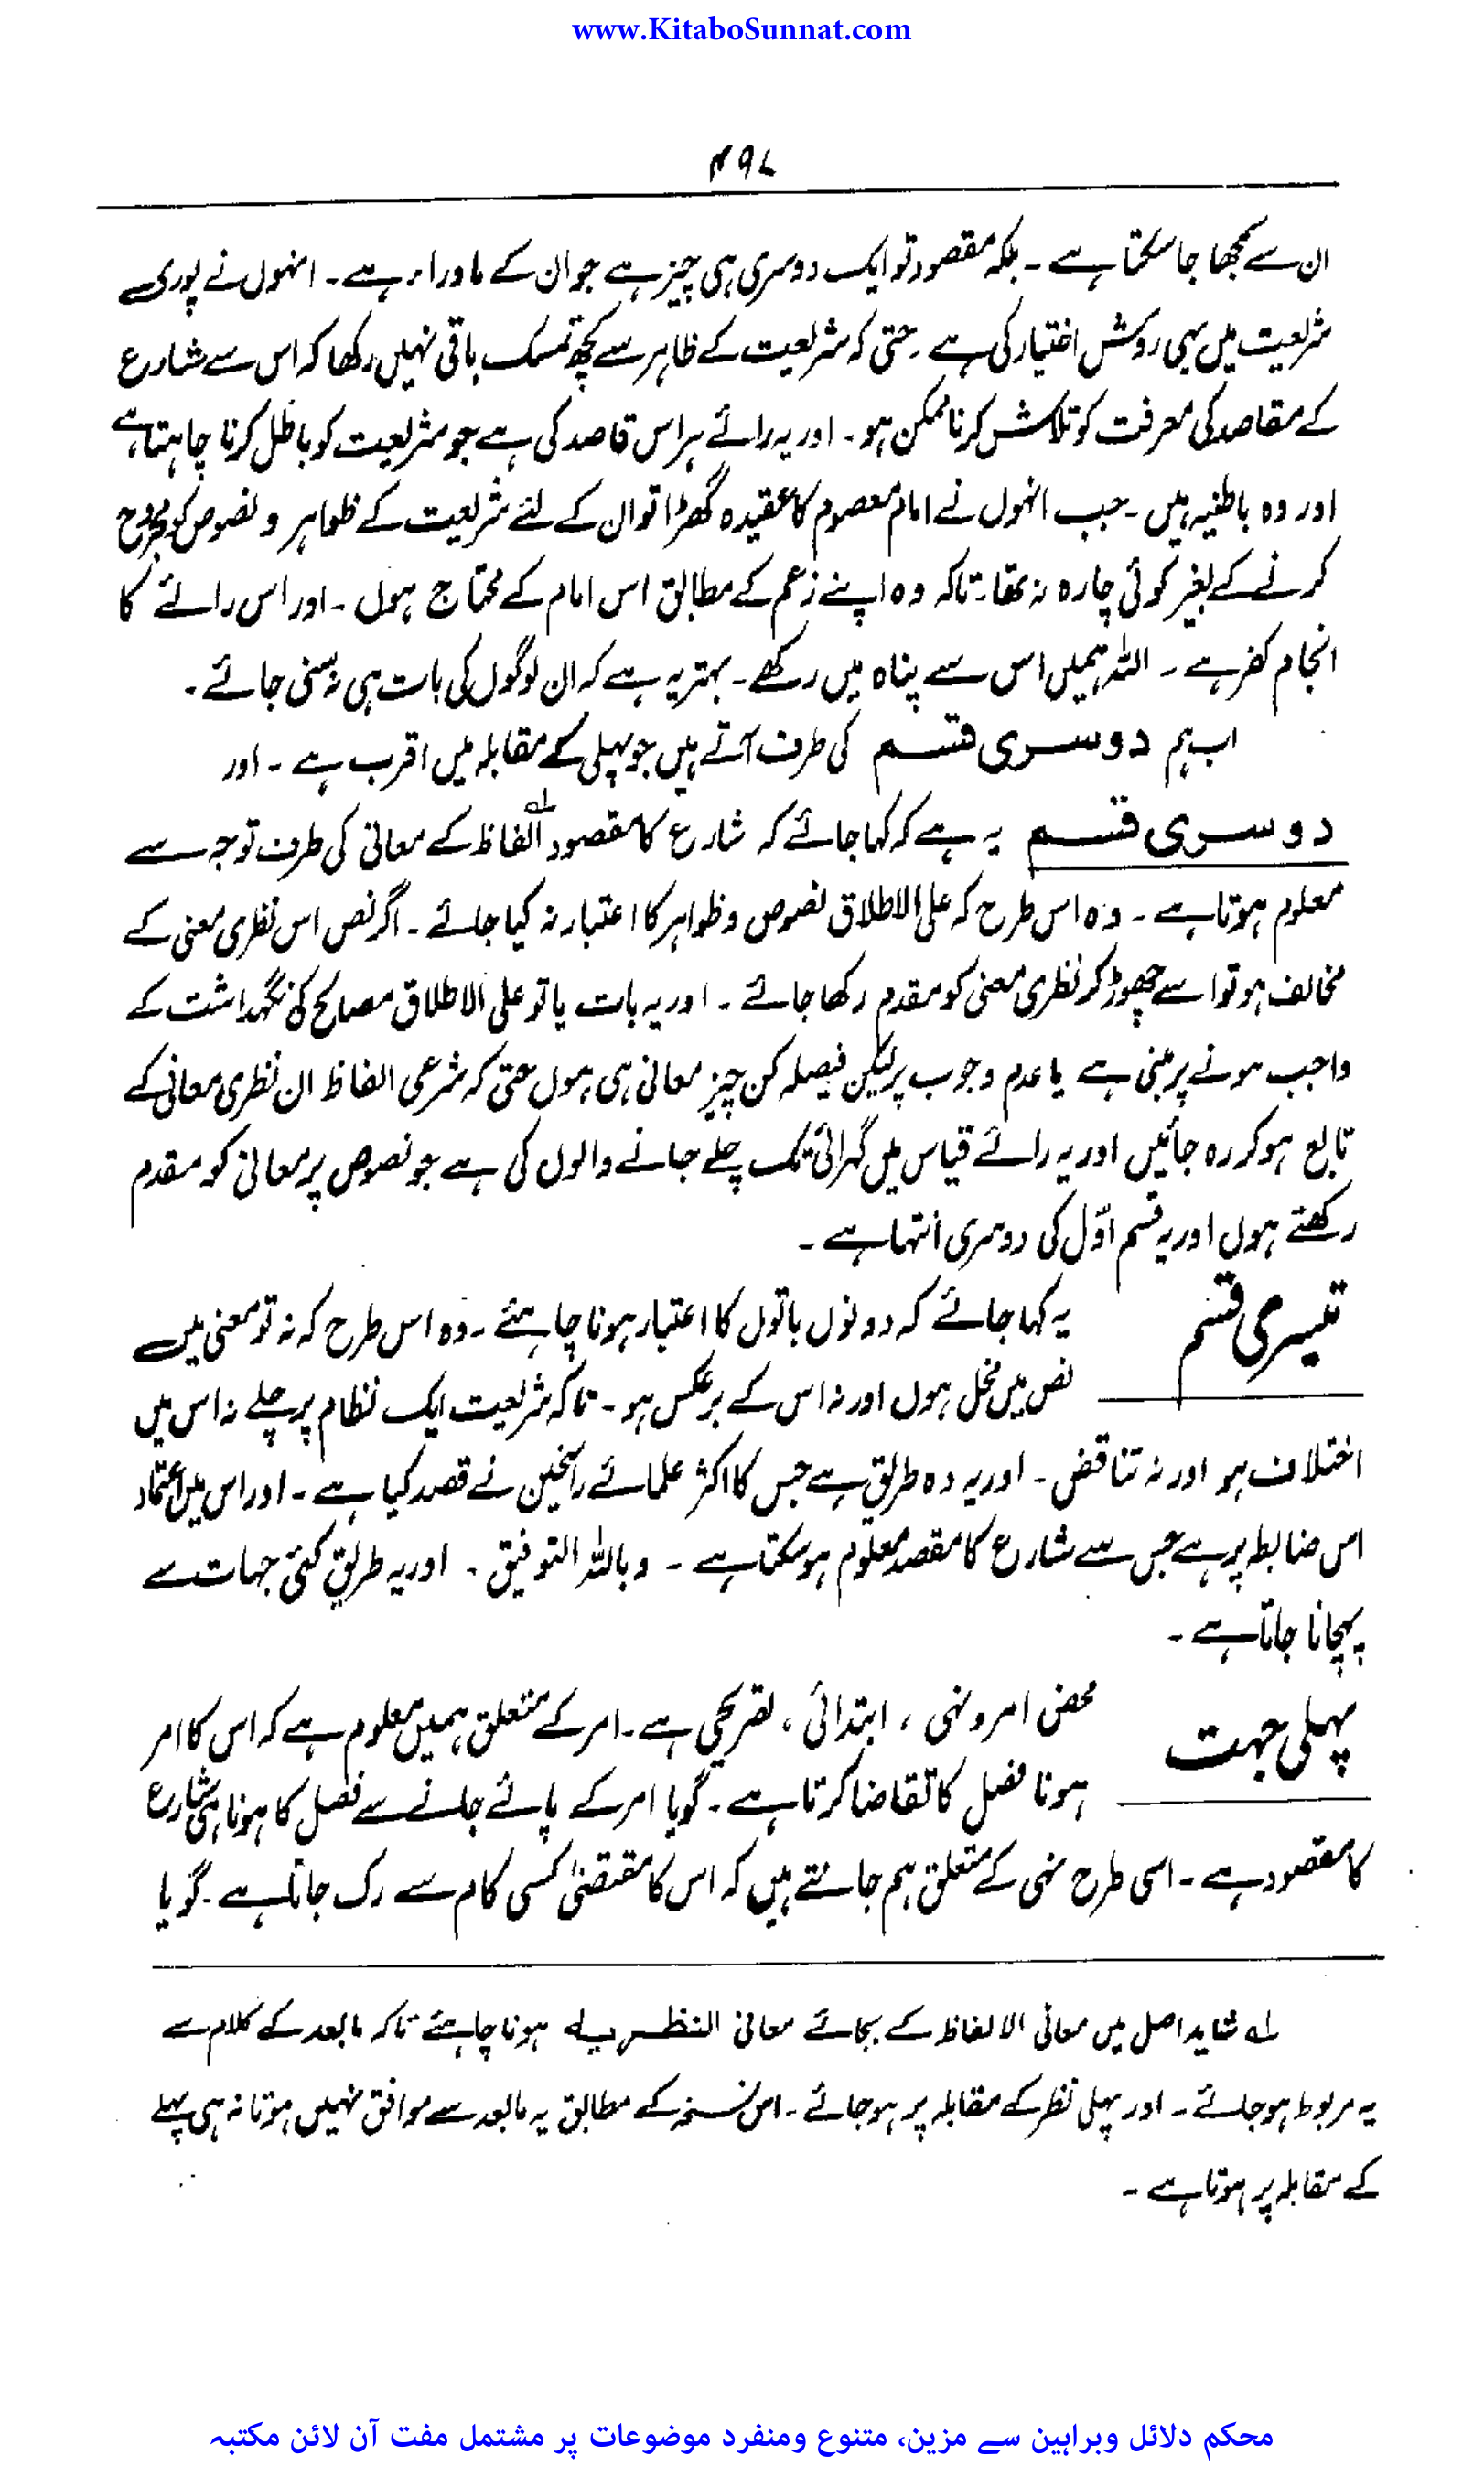 www.KitaboSunnat.com
۴۹۷
ان سے سمجھا جا سکتا ہے ۔ بلکہ مقصود تو ایک دوسری ہی چیز ہے جو ان کے ماوراء ہے ۔ انہوں نے پوری
شریعت میں یہی روش اختیار کی ہے ۔ حتی کہ شریعت کے ظاہر سے کچھ تمسک باقی نہیں رکھا کہ اس سے شارع
کے مقاصد کی معرفت کو تلاش کرنا ممکن ہو ۔ اور یہ رائے ہر اس قاصد کی ہے جو شریعت کو باطل کرنا چاہتا ہے
اور وہ باطنیہ ہیں ۔ جب انہوں نے امام معصوم کا عقیدہ گھڑا تو ان کے لئے شریعت کے ظواہر و نصوص کو مجروح
کرنے کے بغیر کوئی چارہ نہ تھا ۔ تاکہ وہ اپنے زعم کے مطابق اس امام کے محتاج ہوں ۔ اور اس رائے کا
انجام کفر ہے ۔ اللہ ہمیں اس سے پناہ میں رکھے ۔ بہتر یہ ہے کہ ان لوگوں کی بات ہی نہ سنی جائے ۔
اب ہم دوسری قسم کی طرف آتے ہیں جو پہلی کے مقابلہ میں اقرب ہے ۔ اور
دوسری قسم یہ ہے کہ کہا جائے کہ شارع کا مقصود الفاظ ؎۱ کے معانی کی طرف توجہ سے
معلوم ہوتا ہے ۔ وہ اس طرح کہ علی الاطلاق نصوص و ظواہر کا اعتبار نہ کیا جائے ۔ اگر نص اس نظری معنی کے
مخالف ہو تو اسے چھوڑ کر نظری معنی کو مقدم رکھا جائے ۔ اور یہ بات یا تو علی الاطلاق مصالح کی نگہداشت کے
واجب ہونے پر مبنی ہے یا عدم وجوب پر لیکن فیصلہ کن چیز معانی ہی ہوں حتی کہ شرعی الفاظ ان نظری معانی کے
تابع ہو کر رہ جائیں اور یہ رائے قیاس میں گہرائی تک چلے جانے والوں کی ہے جو نصوص پر معانی کو مقدم
رکھتے ہوں اور یہ قسم اوّل کی دوسری انتہا ہے ۔
تیسری قسم یہ کہا جائے کہ دونوں باتوں کا اعتبار ہونا چاہئے ۔ وہ اس طرح کہ نہ تو معنی میں
نص میں مخل ہوں اور نہ اس کے برعکس ہو ۔ تاکہ شریعت ایک نظام پر چلے نہ اس میں
اختلاف ہو اور نہ تناقض ۔ اور یہ وہ طریق ہے جس کا اکثر علمائے راسخین نے قصد کیا ہے ۔ اور اس میں اعتماد
اس ضابطہ پر ہے جس سے شارع کا مقصد معلوم ہو سکتا ہے ۔ وباللہ التوفیق ۔ اور یہ طریق کئی جہات سے
پہچانا جاتا ہے ۔
پہلی جہت محض امر و نہی ، ابتدائی ، تصریحی ہے ۔ امر کے متعلق ہمیں معلوم ہے کہ اس کا امر
ہونا فعل کا تقاضا کرتا ہے ۔ گویا امر کے پائے جانے سے فعل کا ہونا ہی شارع
کا مقصود ہے ۔ اسی طرح نہی کے متعلق ہم جانتے ہیں کہ اس کا مقتضیٰ کسی کام سے رک جانا ہے ۔ گویا
؎۱ شاید اصل میں معانی الالفاظ کے بجائے معانی النظریہ ہونا چاہئے تاکہ مابعد کے کلام سے
یہ مربوط ہو جائے ۔ اور پہلی نظر کے مقابلہ پر ہو جائے ۔ اس نسخہ کے مطابق یہ مابعد سے موافق نہیں ہوتا نہ ہی پہلے
کے مقابلہ پر ہوتا ہے ۔
محکم دلائل وبراہین سے مزین، متنوع ومنفرد موضوعات پر مشتمل مفت آن لائن مکتبہ